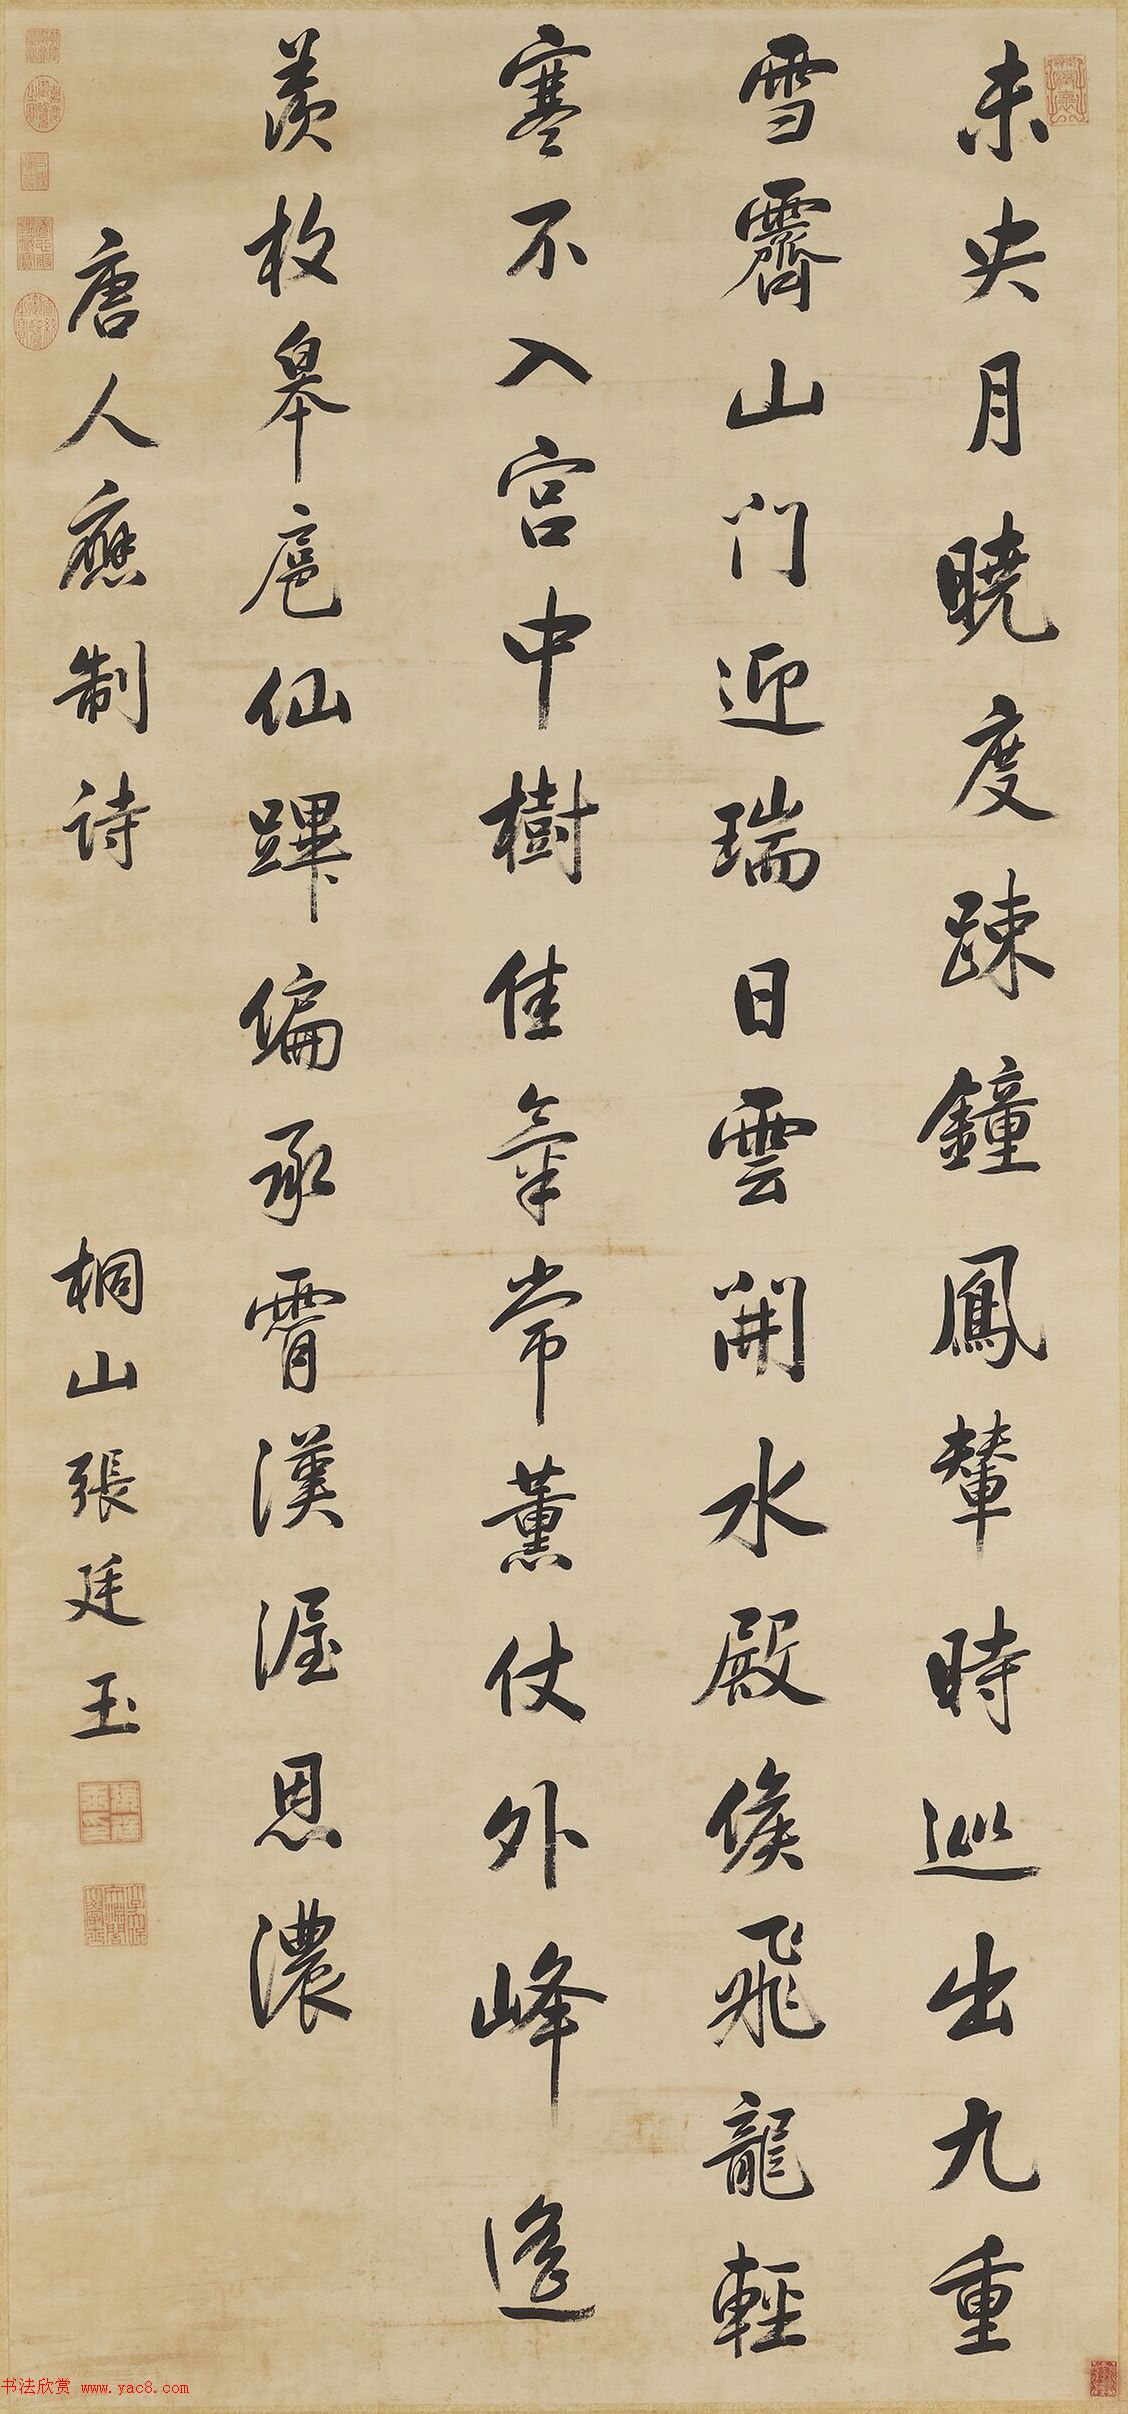 未央月曉度踈鐘鳳輦時巡出九重
雪霽山門迎瑞日雲開水殿候飛龍輕
寒不入宫中樹佳氣常薰仗外峰遙
羨枚皋扈仙蹕偏承霄漢渥恩濃
唐人應制诗
桐山張廷玉
书法欣赏 www.yac8.com